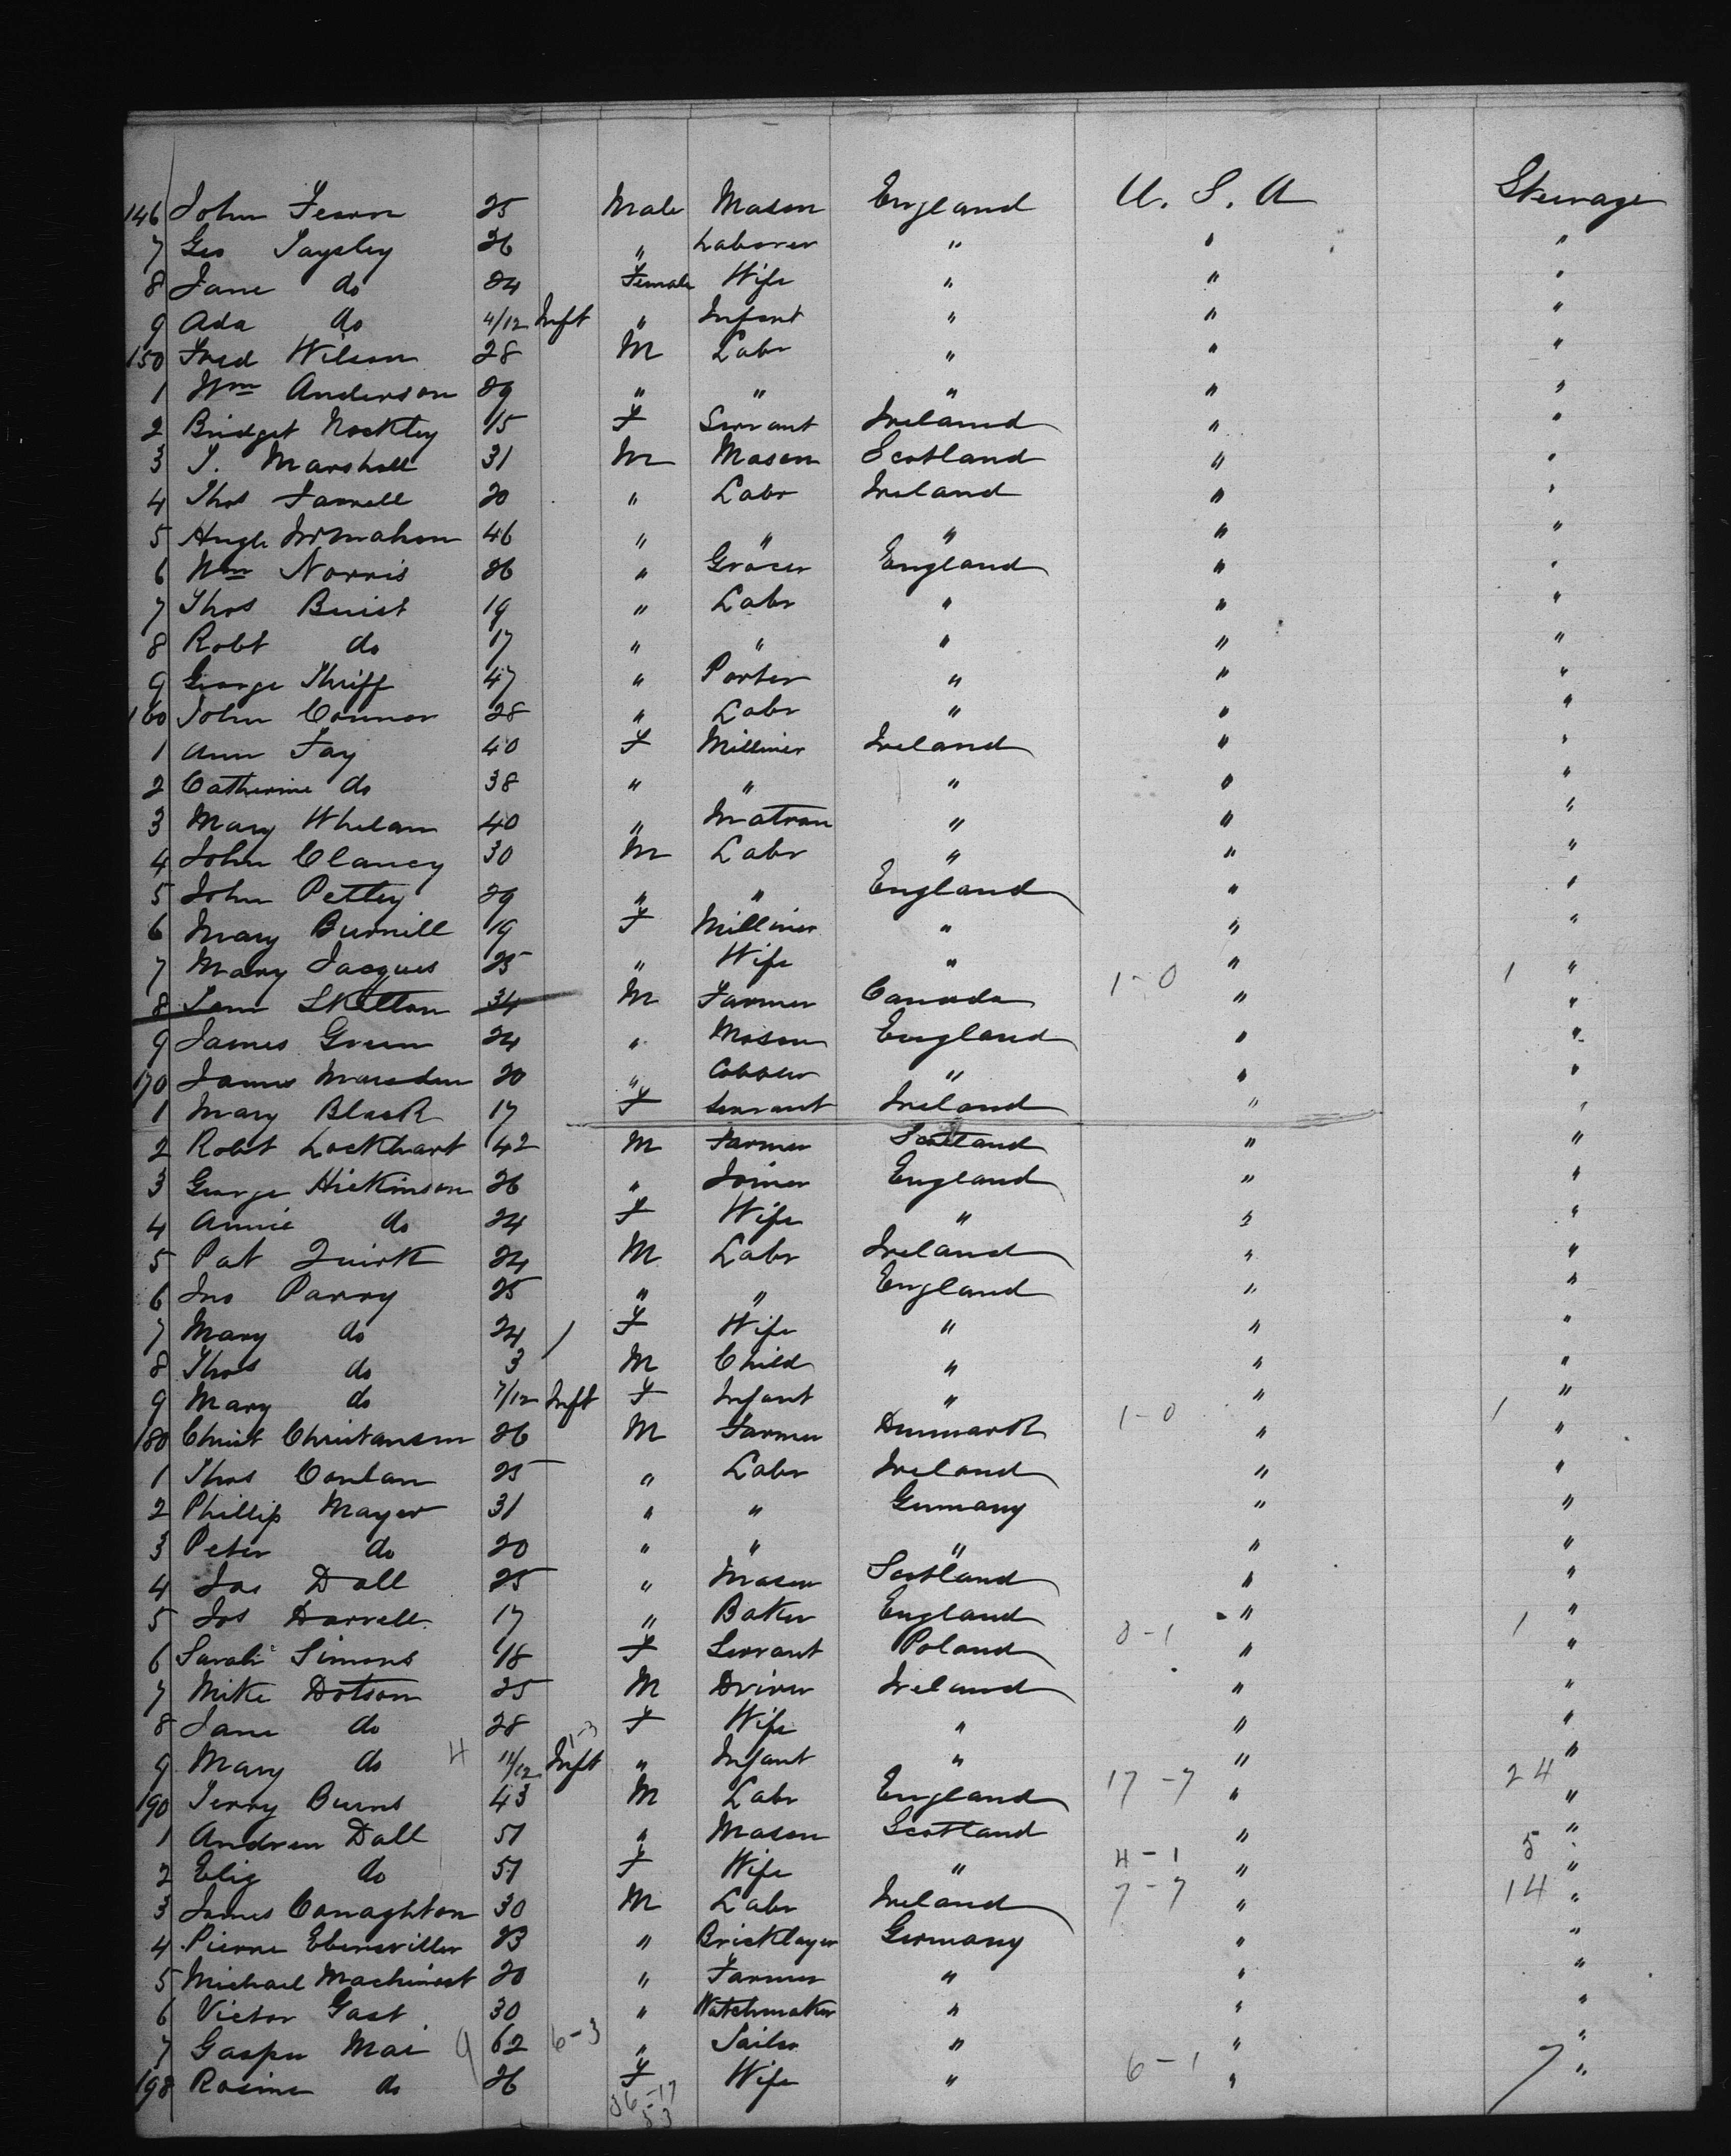 146 John Fearn 25 Male Mason England U. S. A Steerage
7 Geo Taysley 26 " Laborer " " "
8 Jane do 24 Female Wife " " "
9 Ada do 4/12 Inft " Infant " " "
150 Fred Wilson 28 M Labr " " "
1 Wm Anderson 29 " " " " "
2 Bridget Nockley 15 F Servant Ireland " "
3 T. Marshall 31 M Mason Scotland " "
4 Thos Farrell 20 " Labr Ireland " "
5 Hugh McMahon 46 " " " " "
6 Wm Norris 26 " Grocer England " "
7 Thos Buist 19 " Labr " " "
8 Robt do 17 " " " " "
9 George Thriff 47 " Porter " " "
160 John Connor 28 " Labr " " "
1 Ann Fay 40 F Milliner Ireland " "
2 Catherine do 38 " " " " "
3 Mary Whelan 40 " Matron " " "
4 John Clancy 30 M Labr " " "
5 John Pettey 29 " " England " "
6 Mary Burnill 19 F Milliner " " "
7 Mary Jacques 25 " Wife " " "
8 Tom Skelton 34 M Farmer Canada 1-0 " 1 "
9 James Green 24 " Mason England " "
170 James Marsden 20 " Cobbler " " "
1 Mary Black 17 F Servant Ireland " "
2 Robt Lockhart 42 M Farmer Scotland " "
3 George Hickinson 26 " Joiner England " "
4 Annie do 24 F Wife " " "
5 Pat Quirk 24 M Labr Ireland " "
6 Jno Parry 25 " " England " "
7 Mary do 24 F Wife " " "
8 Thos do 3 1 M Child " " "
9 Mary do 7/12 Inft F Infant " " "
180 Christ Christansen 26 M Farmer Denmark 1-0 " 1 "
1 Thos Conlan 25 " Labr Ireland " "
2 Phillip Mayer 31 " " Germany " "
3 Peter do 20 " " " " "
4 Jas Dall 25 " Mason Scotland " "
5 Jos Darrell 17 " Baker England " "
6 Sarah Simons 18 F Servant Poland 0-1 " 1 "
7 Mike Dotson 25 M Driver Ireland " "
8 Jane do 28 F Wife " " "
9 Mary do 4 11/12 Inft 1-3 " Infant " " "
190 Jerry Burns 43 M Labr England 17-7 " 24 "
1 Andrew Dall 51 " Mason Scotland " "
2 Eliz do 51 F Wife " 4-1 " 5 "
3 James Conaghton 30 M Labr Ireland 7-7 " 14 "
4 Pierre Ebersviller 23 " Bricklayer Germany " "
5 Michael 20 " Farmer " " "
6 Victor Gast 30 " Watchmaker " " "
7 Gasper Mai 9 62 6-3 " Tailor " " "
198 Rosine do 26 F Wife " 6-1 " 7 "
36-17
53